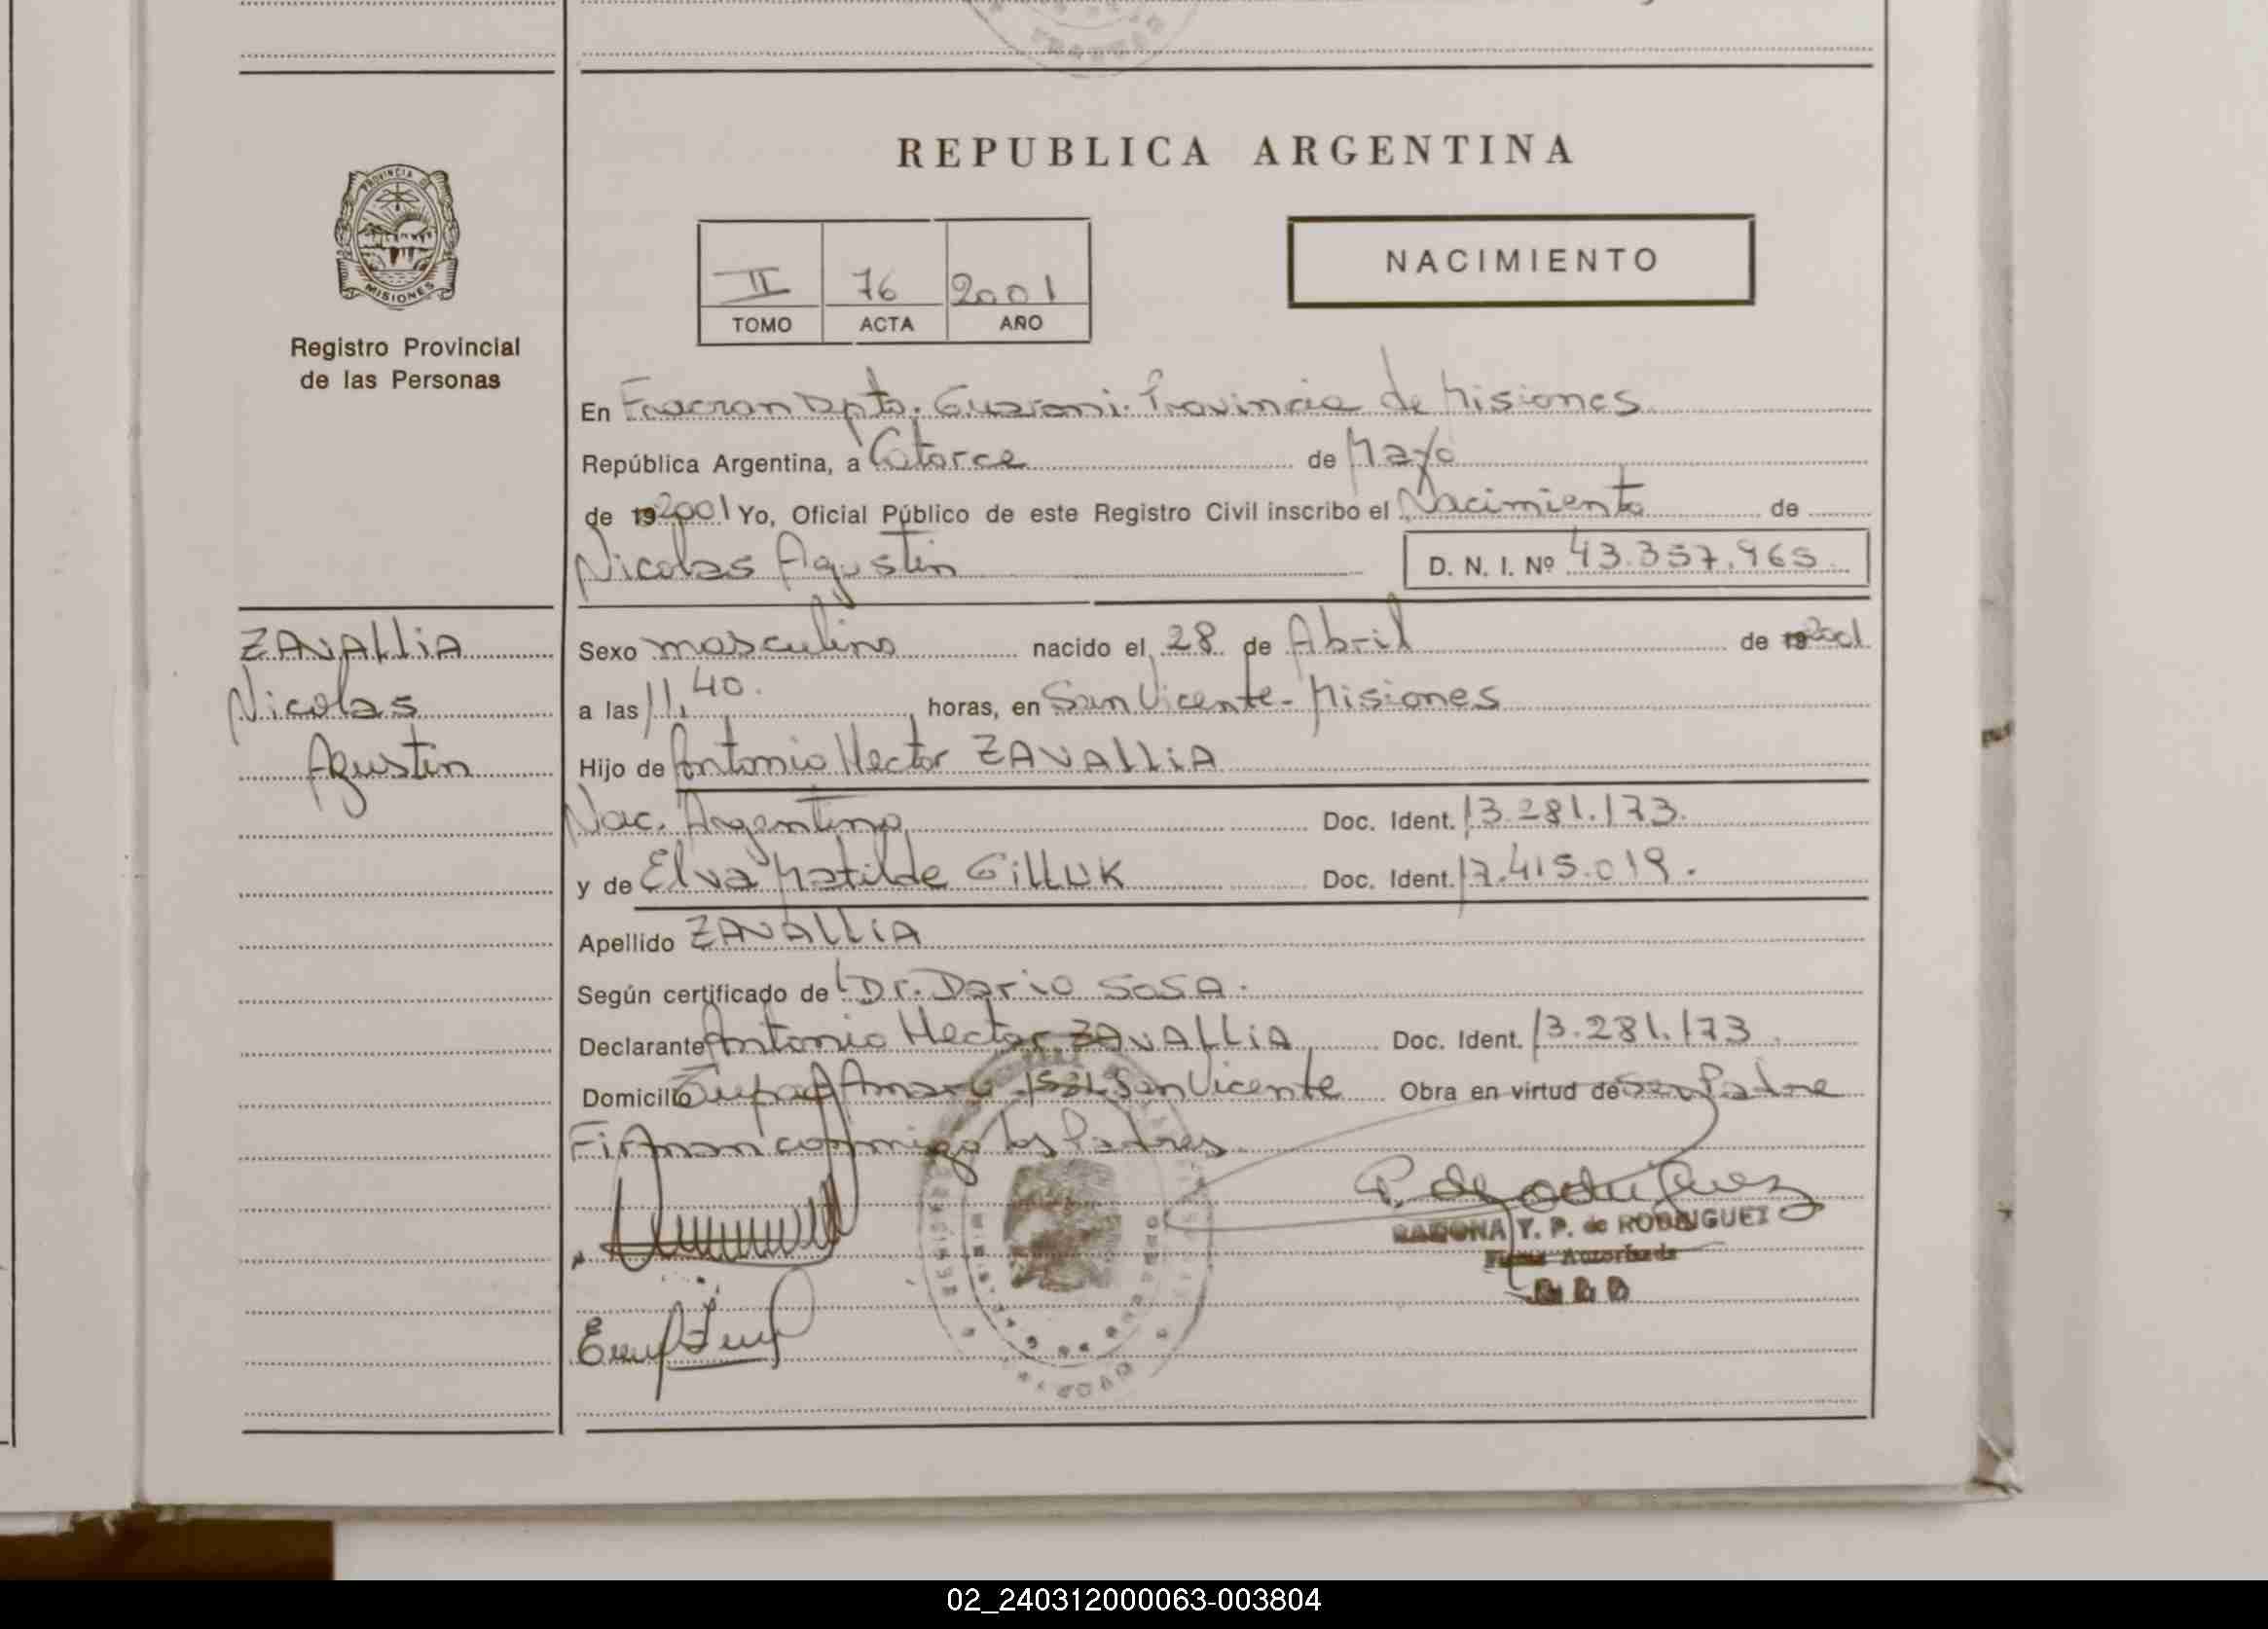 REPUBLICA ARGENTINA
PROVINCIA DE
MISIONES
Registro Provincial
de las Personas
NACIMIENTO
II 76 2001
TOMO ACTA AÑO
En Fracran Dpto. Guarani. Provincia de Misiones
República Argentina, a Catorce de Mayo
de 19 2001 Yo, Oficial Público de este Registro Civil inscribo el Nacimiento de
Nicolas Agustin D. N. I. Nº 43.357.965
ZAVALLiA
Nicolas
Agustin
Sexo masculino nacido el 28 de Abril de 19 2001
a las 11,40. horas, en San Vicente - Misiones
Hijo de Antonio Hector ZAVALLiA
Nac. Argentino Doc. Ident. 13.281.173.
y de Elva Matilde GiLLUK Doc. Ident. 17.415.019.
Apellido ZAVALLiA
Según certificado de Dr. Dario SOSA.
Declarante Antonio Hector ZAVALLiA Doc. Ident. 13.281.173
Domicilio Tupac Amaru San Vicente Obra en virtud de Ser Padre
Firman conmigo los Padres
RAMONA Y. P. de RODRIGUEZ
Firma Autorizada
02_240312000063-003804